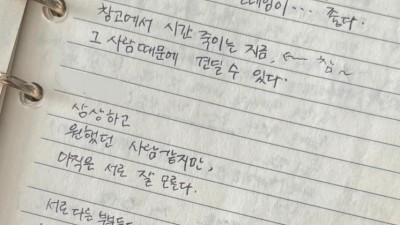 좋다.
창고에서 시간 죽이는 지금, 참~
그 사람 때문에 견딜 수 있다.
상상하고
원했던 사람 같지만,
아직은 서로 잘 모른다.
서로 다른